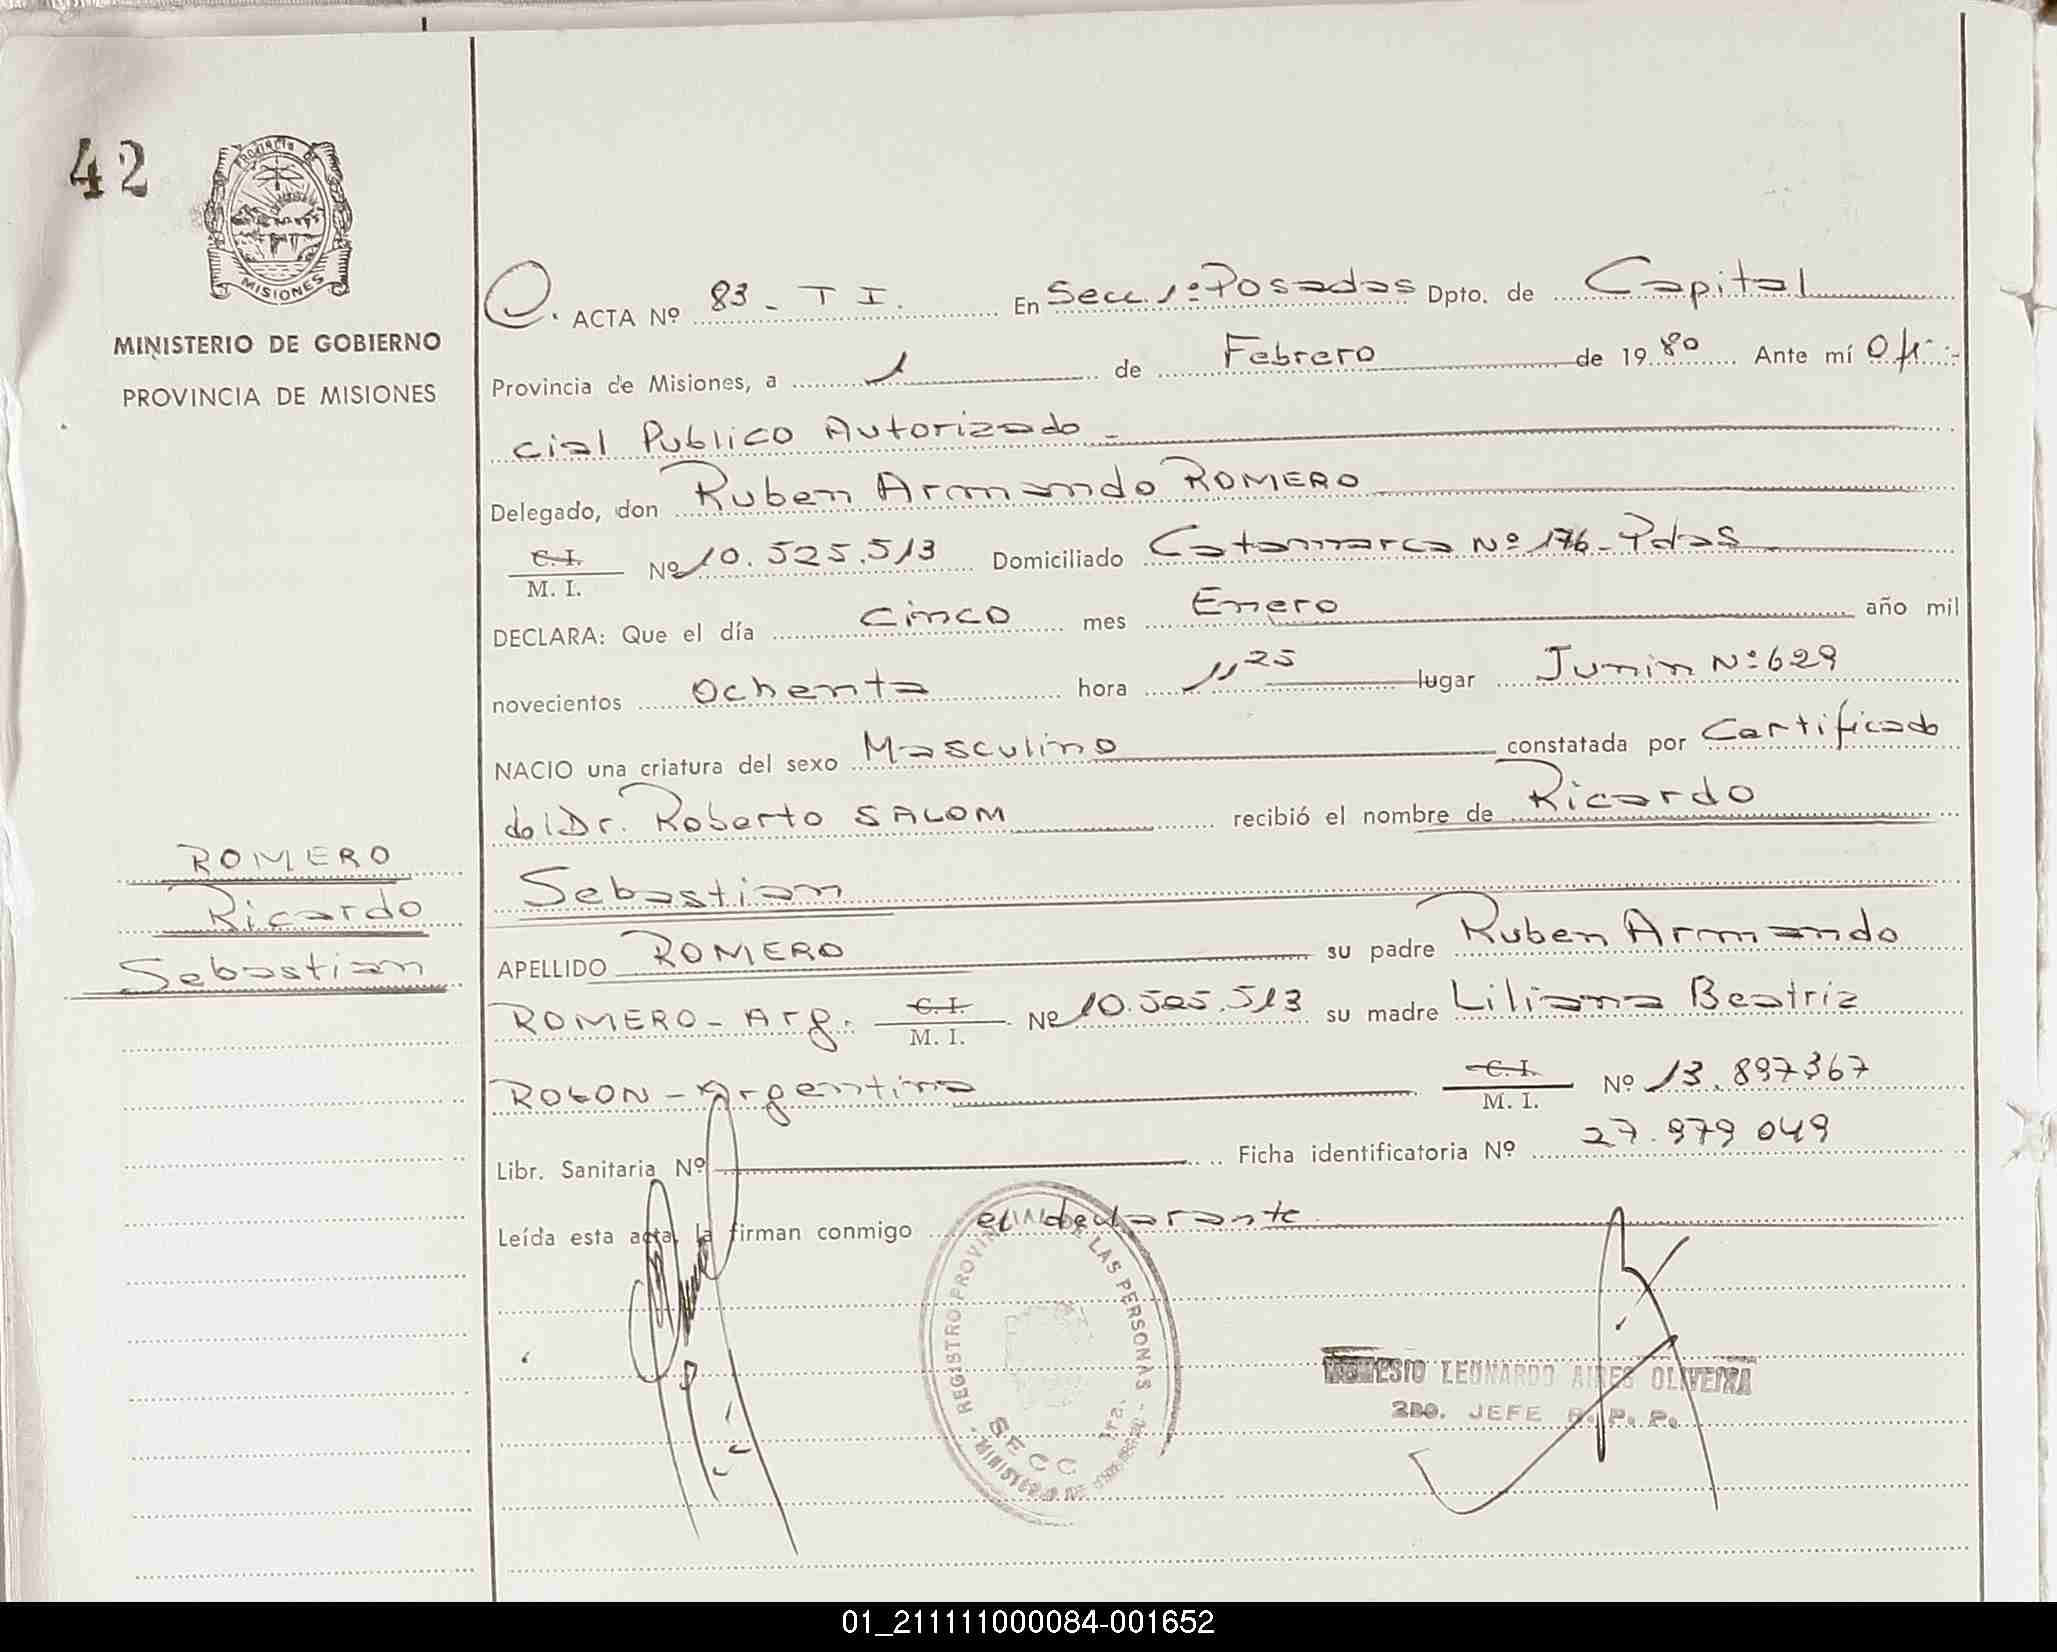 42
PROVINCIA DE
MISIONES
MINISTERIO DE GOBIERNO
PROVINCIA DE MISIONES
ROMERO
Ricardo
Sebastian
ACTA Nº 83 - T I. En Secc. 1º Posadas Dpto. de Capital
Provincia de Misiones, a 1 de Febrero de 1980 Ante mí Ofi-
cial Publico Autorizado -
Delegado, don Ruben Armando ROMERO
C. I. / M. I. Nº 10.525.513 Domiciliado Catamarca Nº 176 - Pdas
DECLARA: Que el día cinco mes Enero año mil
novecientos ochenta hora 11 25 lugar Junin Nº 629
NACIO una criatura del sexo Masculino constatada por Certificado
del Dr. Roberto SALOM recibió el nombre de Ricardo
Sebastian
APELLIDO ROMERO su padre Ruben Armando
ROMERO - Arg. C. I. / M. I. Nº 10.525.513 su madre Liliana Beatriz
ROLON - Argentina C. I. / M. I. Nº 13.897367
Libr. Sanitaria Nº Ficha identificatoria Nº 27.979 049
Leída esta acta, la firman conmigo el declarante
REGISTRO PROVINCIAL DE LAS PERSONAS
SECC 1ra.
LEONARDO AIRES OLIVEIRA
2DO. JEFE R. P. P.
01_211111000084-001652